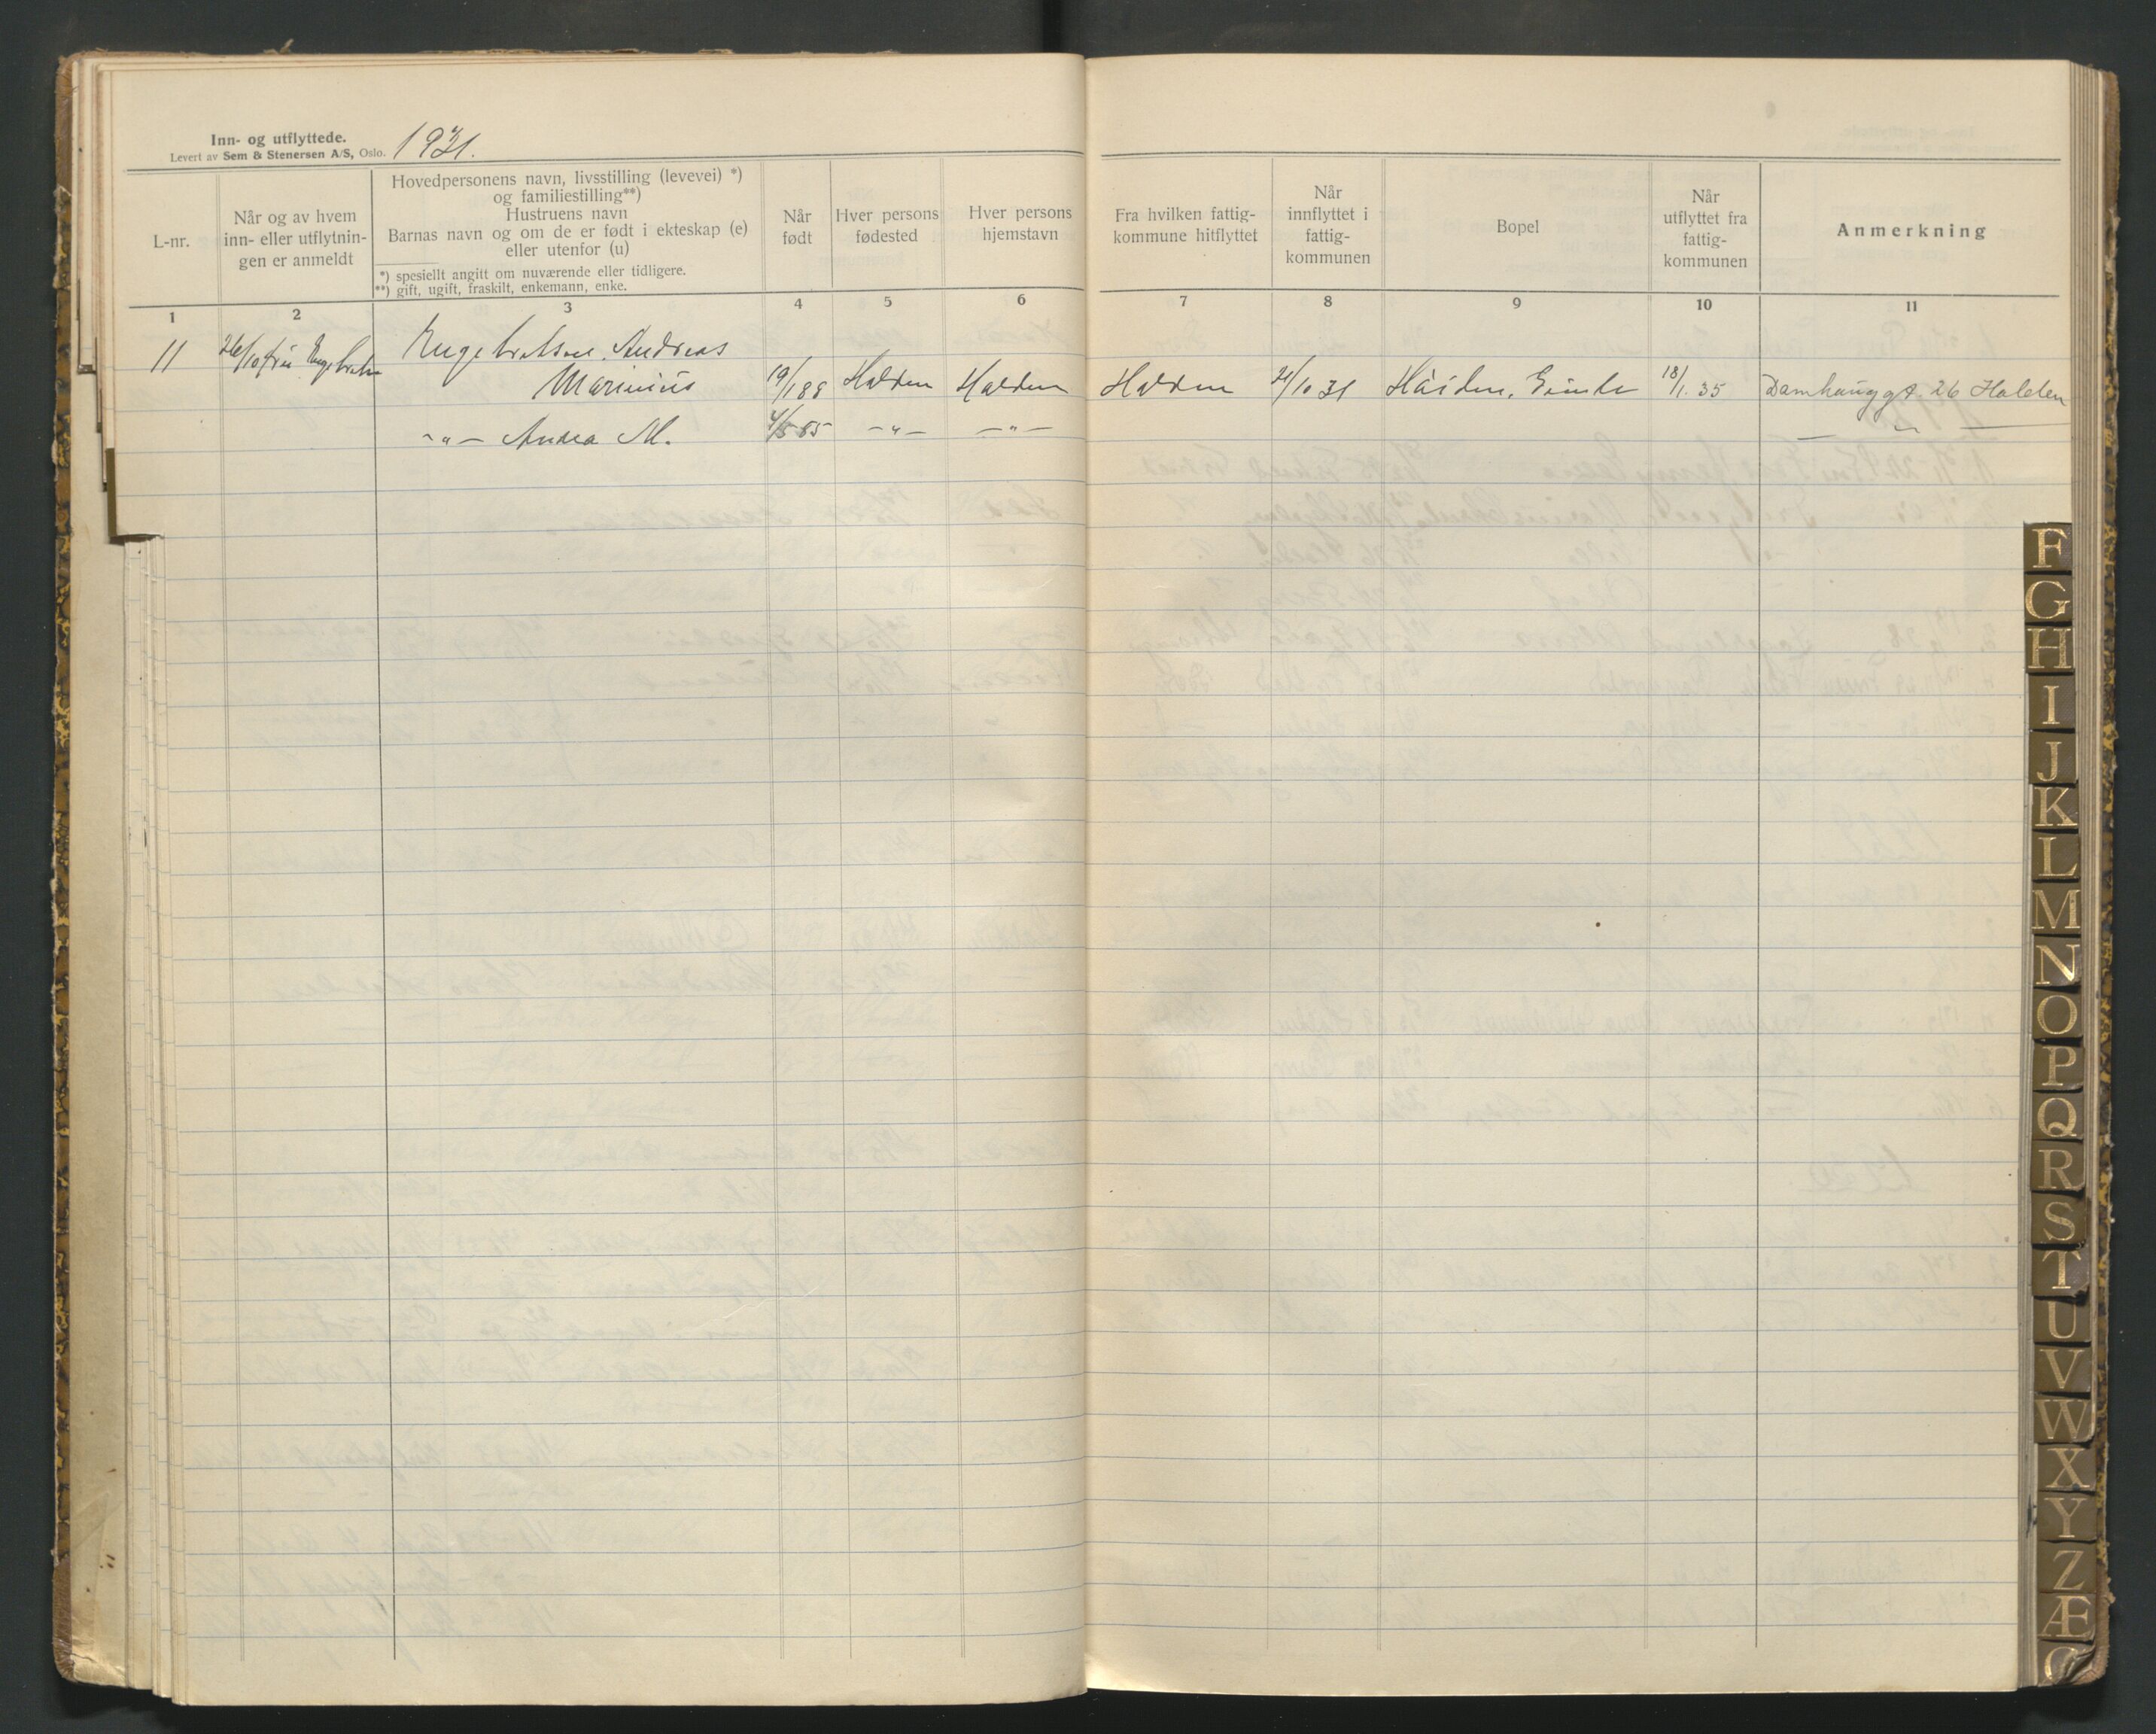 Inn- og utflyttede.
Levert av Sem & Stenersen A/S, Oslo.
1931.
L-nr.
Når og av hvem
inn- eller utflytnin-
gen er anmeldt
Hovedpersonens navn, livsstilling (levevei) *)
og familiestilling**)
Hustruens navn
Barnas navn og om de er født i ekteskap (e)
eller utenfor (u)
*) spesiellt angitt om nuværende eller tidligere.
**) gift, ugift, fraskilt, enkemann, enke.
Når
født
Hver persons
fødested
Hver persons
hjemstavn
Fra hvilken fattig-
kommune hitflyttet
Når
innflyttet i
fattig-
kommunen
Bopel
Når
utflyttet fra
fattig-
kommunen
Anmerkning
1 2 3 4 5 6 7 8 9 10 11
11 26/10 fru Engebretsen Engebretsen, Andreas
Marinius 19/1 88 Halden Halden Halden 21/10 31 18/1. 35 Damhauggt. 26 Halden
-"- Andrea M. 4/5 85 -"- -"- — " —
F
G
H
I
J
K
L
M
N
O
P
Q
R
S
T
U
V
W
X
Y
Z
Æ